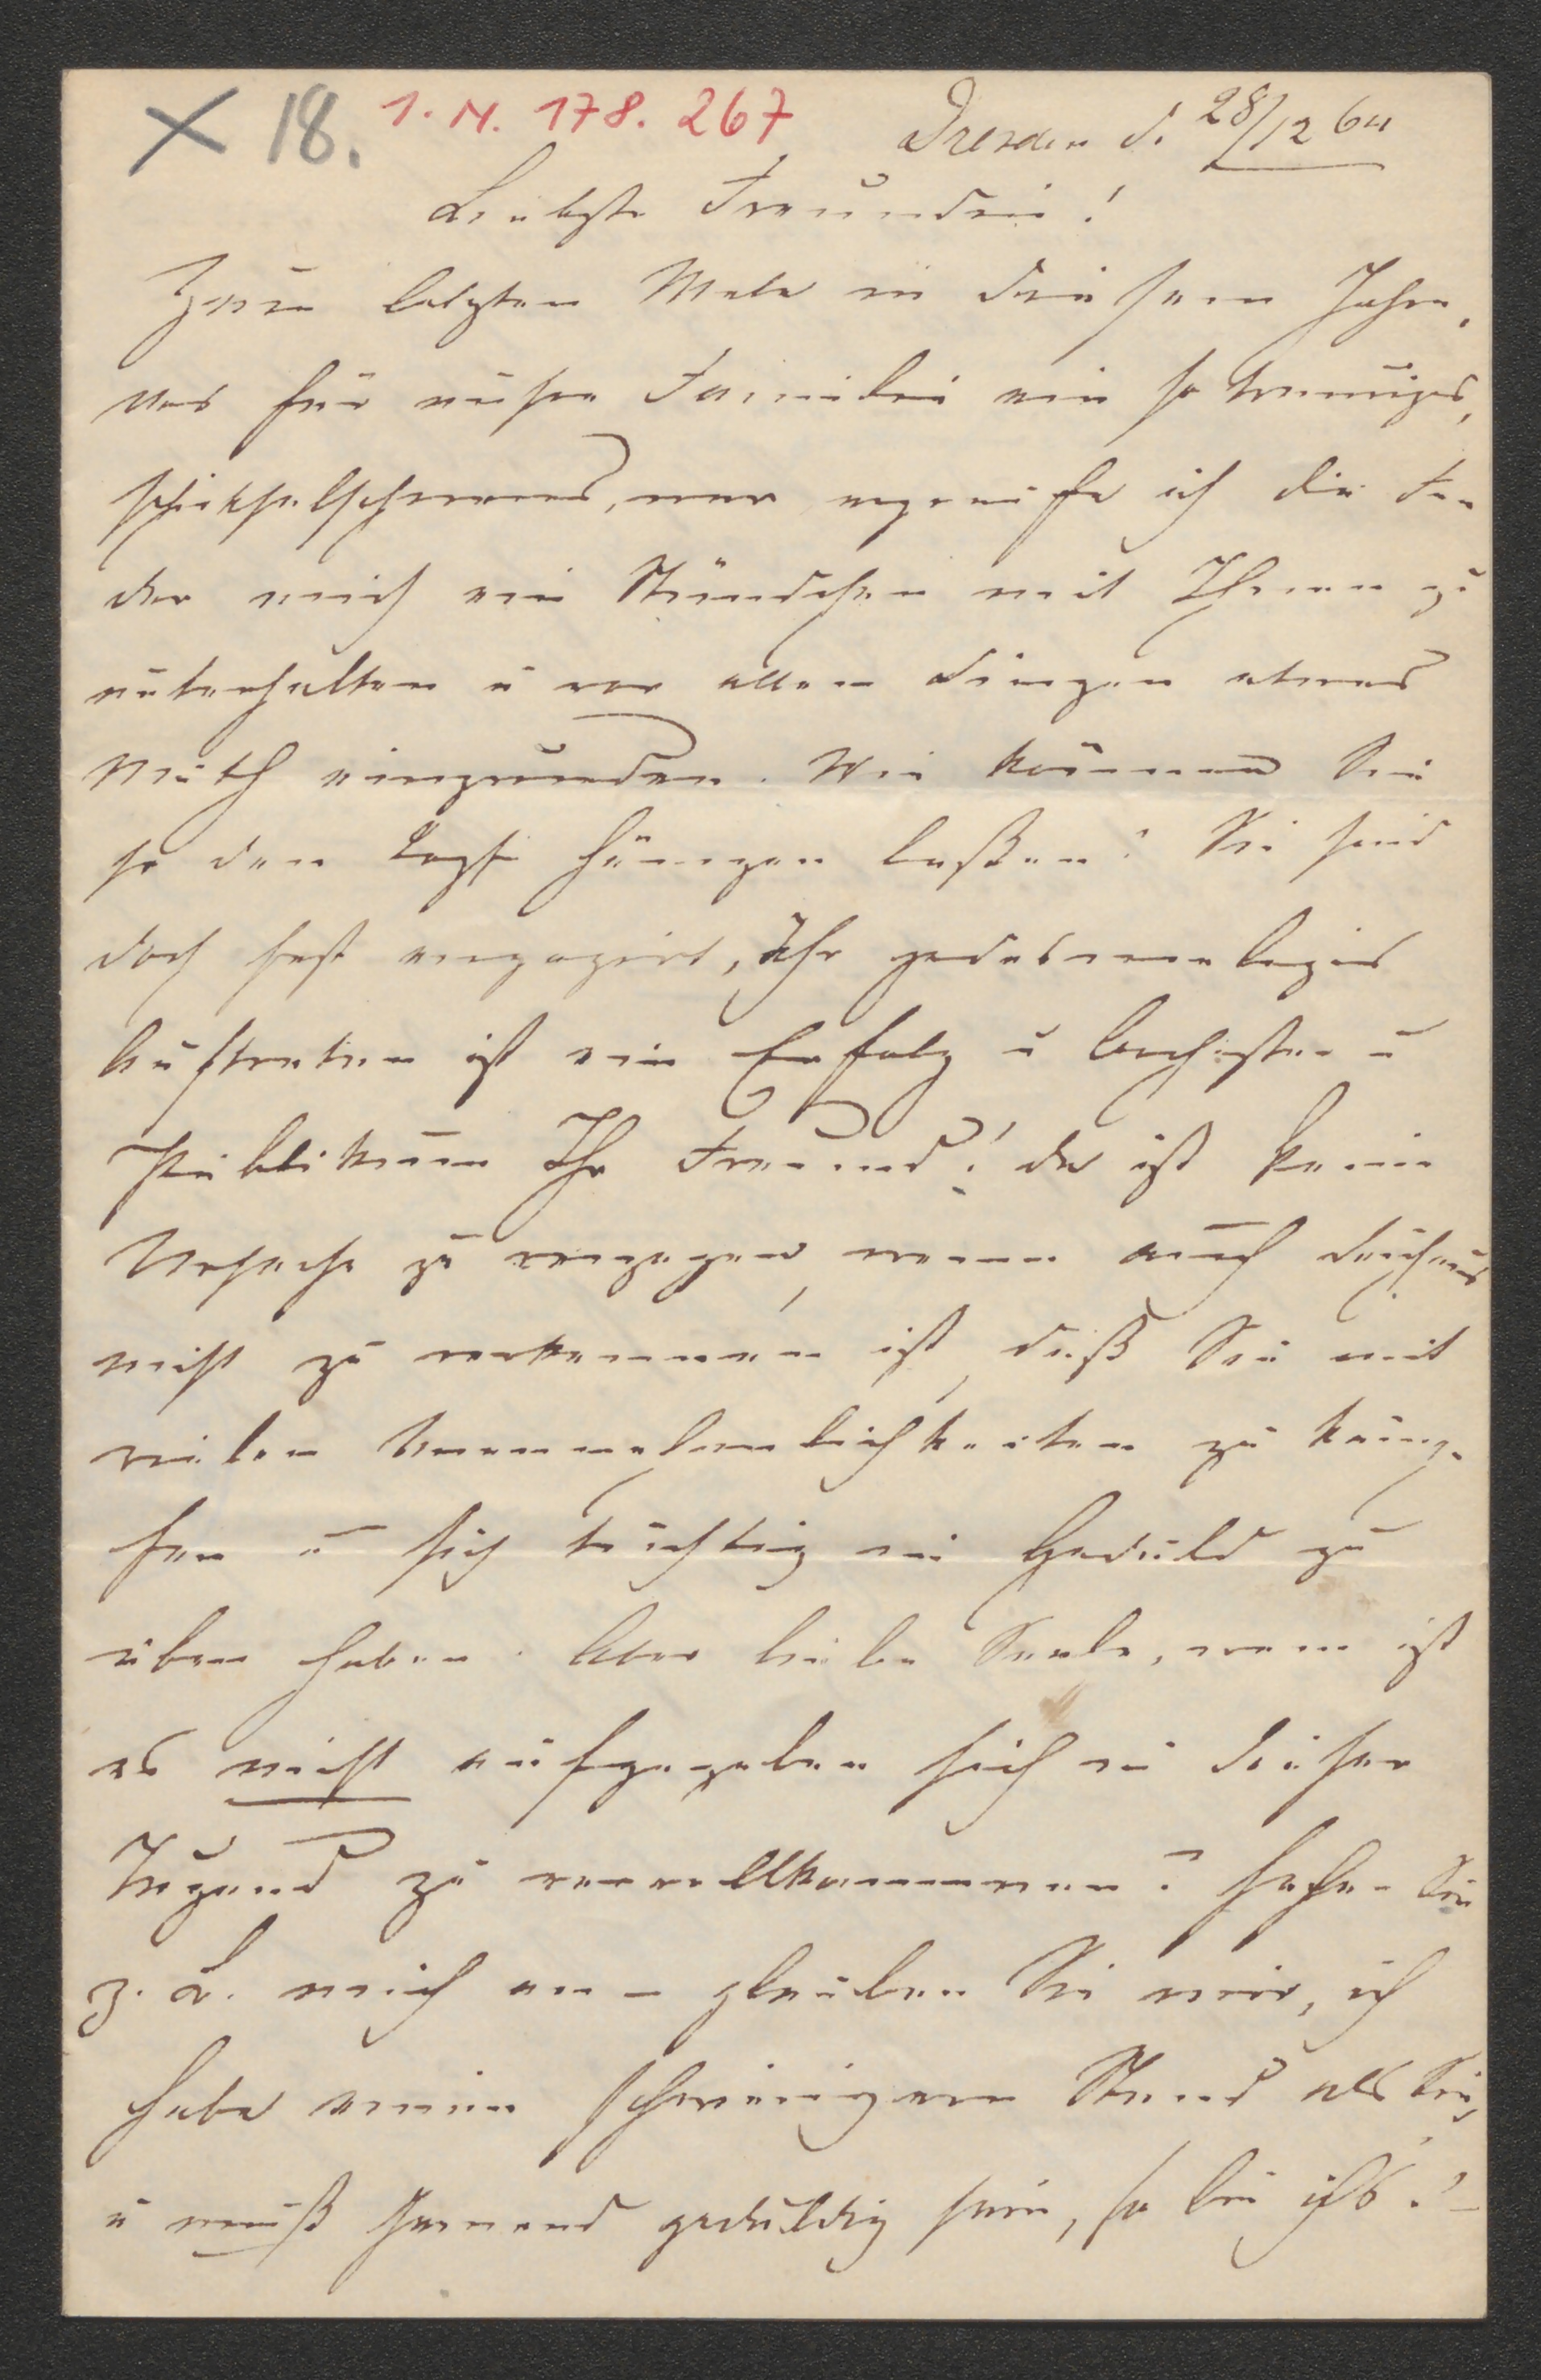 × 18. 1. N. 178. 267 Dresden d. 28/12 64
Liebste Freundin!
Zum letzten Male in diesem Jahre,
das für unsre Familie ein so trauriges,
schicksalschweres, war ergreife ich die Fe-
der mich ein Stündchen mit Ihnen zu
unterhalten u vor allen Dingen etwas
Muth einzureden. Wie können Sie
so den Kopf hängen laßen? Sie sind
doch fest engagirt, Ihr jedesmaliges
Auftreten ist ein Erfolg u Orchester u
Publikum Ihr Freund! da ist keine
Ursache zu verzagen, wenn auch durchaus
nicht zu verkennen ist, daß Sie mit
vielen Unannehmlichkeiten zu käm-
fen u sich tüchtig in Geduld zu
üben haben. Aber liebe Seele, wem ist
es nicht aufgegeben sich in dieser
Tugend zu vervollkommnen? Sehen Sie
z. B. mich an – glauben Sie mir, ich
habe einen schwierigern Stand als Sie,
u muß Jemand geduldig sein, so bin ichs! –